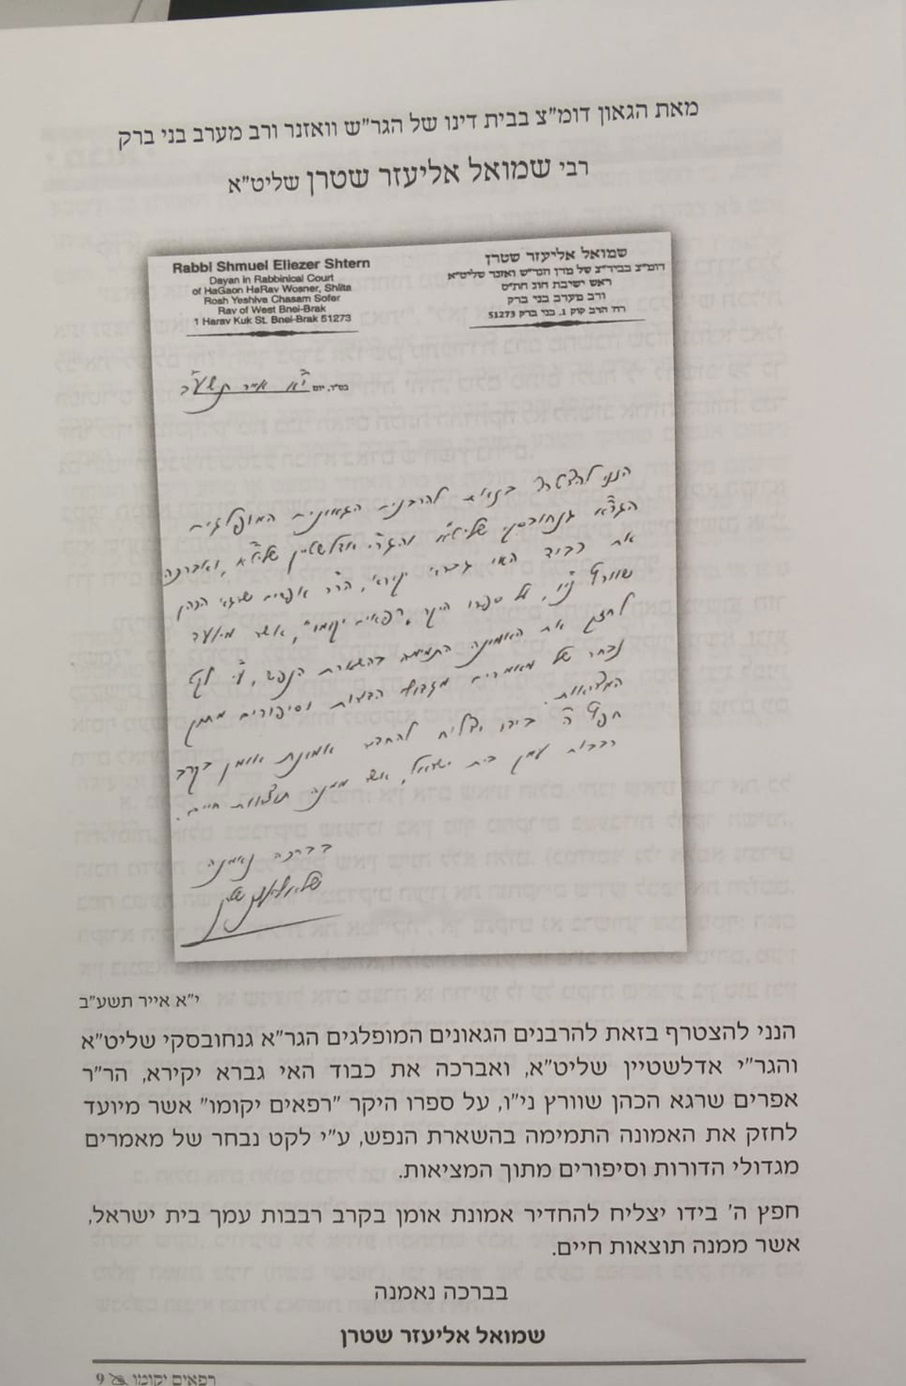 מאת הגאון דומ"צ בבית דינו של הגר"ש וואזנר ורב מערב בני ברק
רבי שמואל אליעזר שטרן שליט"א
Rabbi Shmuel Eliezer Shtern
Dayan in Rabbinical Court
of HaGaon HaRav Wosner, Shlita
Rosh Yeshiva Chasam Sofer
Rav of West Bnei-Brak
1 Harav Kuk St. Bnei-Brak 51273
שמואל אליעזר שטרן
דומ"צ בביד"צ של מרן הגר"ש ואזנר שליט"א
ראש ישיבת חוג חת"ס
ורב מערב בני ברק
רח' הרב קוק 1, בני ברק 51273
בס"ד, יום י"א אייר תשע"ב
הנני להצטרף בזאת להרבנים הגאונים המופלגים
הגר"א גנחובסקי שליט"א והגר"י אדלשטיין שליט"א, ואברכה
את כבוד האי גברא יקירא, הר"ר אפרים שרגא הכהן
שוורץ ני"ו, על ספרו היקר "רפאים יקומו", אשר מיועד
לחזק את האמונה התמימה בהשארת הנפש, ע"י לקט
נבחר של מאמרים מגדולי הדורות וסיפורים מתוך
המציאות.
חפץ ה' בידו יצליח להחדיר אמונת אומן בקרב
רבבות עמך בית ישראל, אשר ממנה תוצאות חיים.
בברכה נאמנה
י"א אייר תשע"ב
הנני להצטרף בזאת להרבנים הגאונים המופלגים הגר"א גנחובסקי שליט"א
והגר"י אדלשטיין שליט"א, ואברכה את כבוד האי גברא יקירא, הר"ר
אפרים שרגא הכהן שוורץ ני"ו, על ספרו היקר "רפאים יקומו" אשר מיועד
לחזק את האמונה התמימה בהשארת הנפש, ע"י לקט נבחר של מאמרים
מגדולי הדורות וסיפורים מתוך המציאות.
חפץ ה' בידו יצליח להחדיר אמונת אומן בקרב רבבות עמך בית ישראל,
אשר ממנה תוצאות חיים.
בברכה נאמנה
שמואל אליעזר שטרן
רפאים יקומו 9